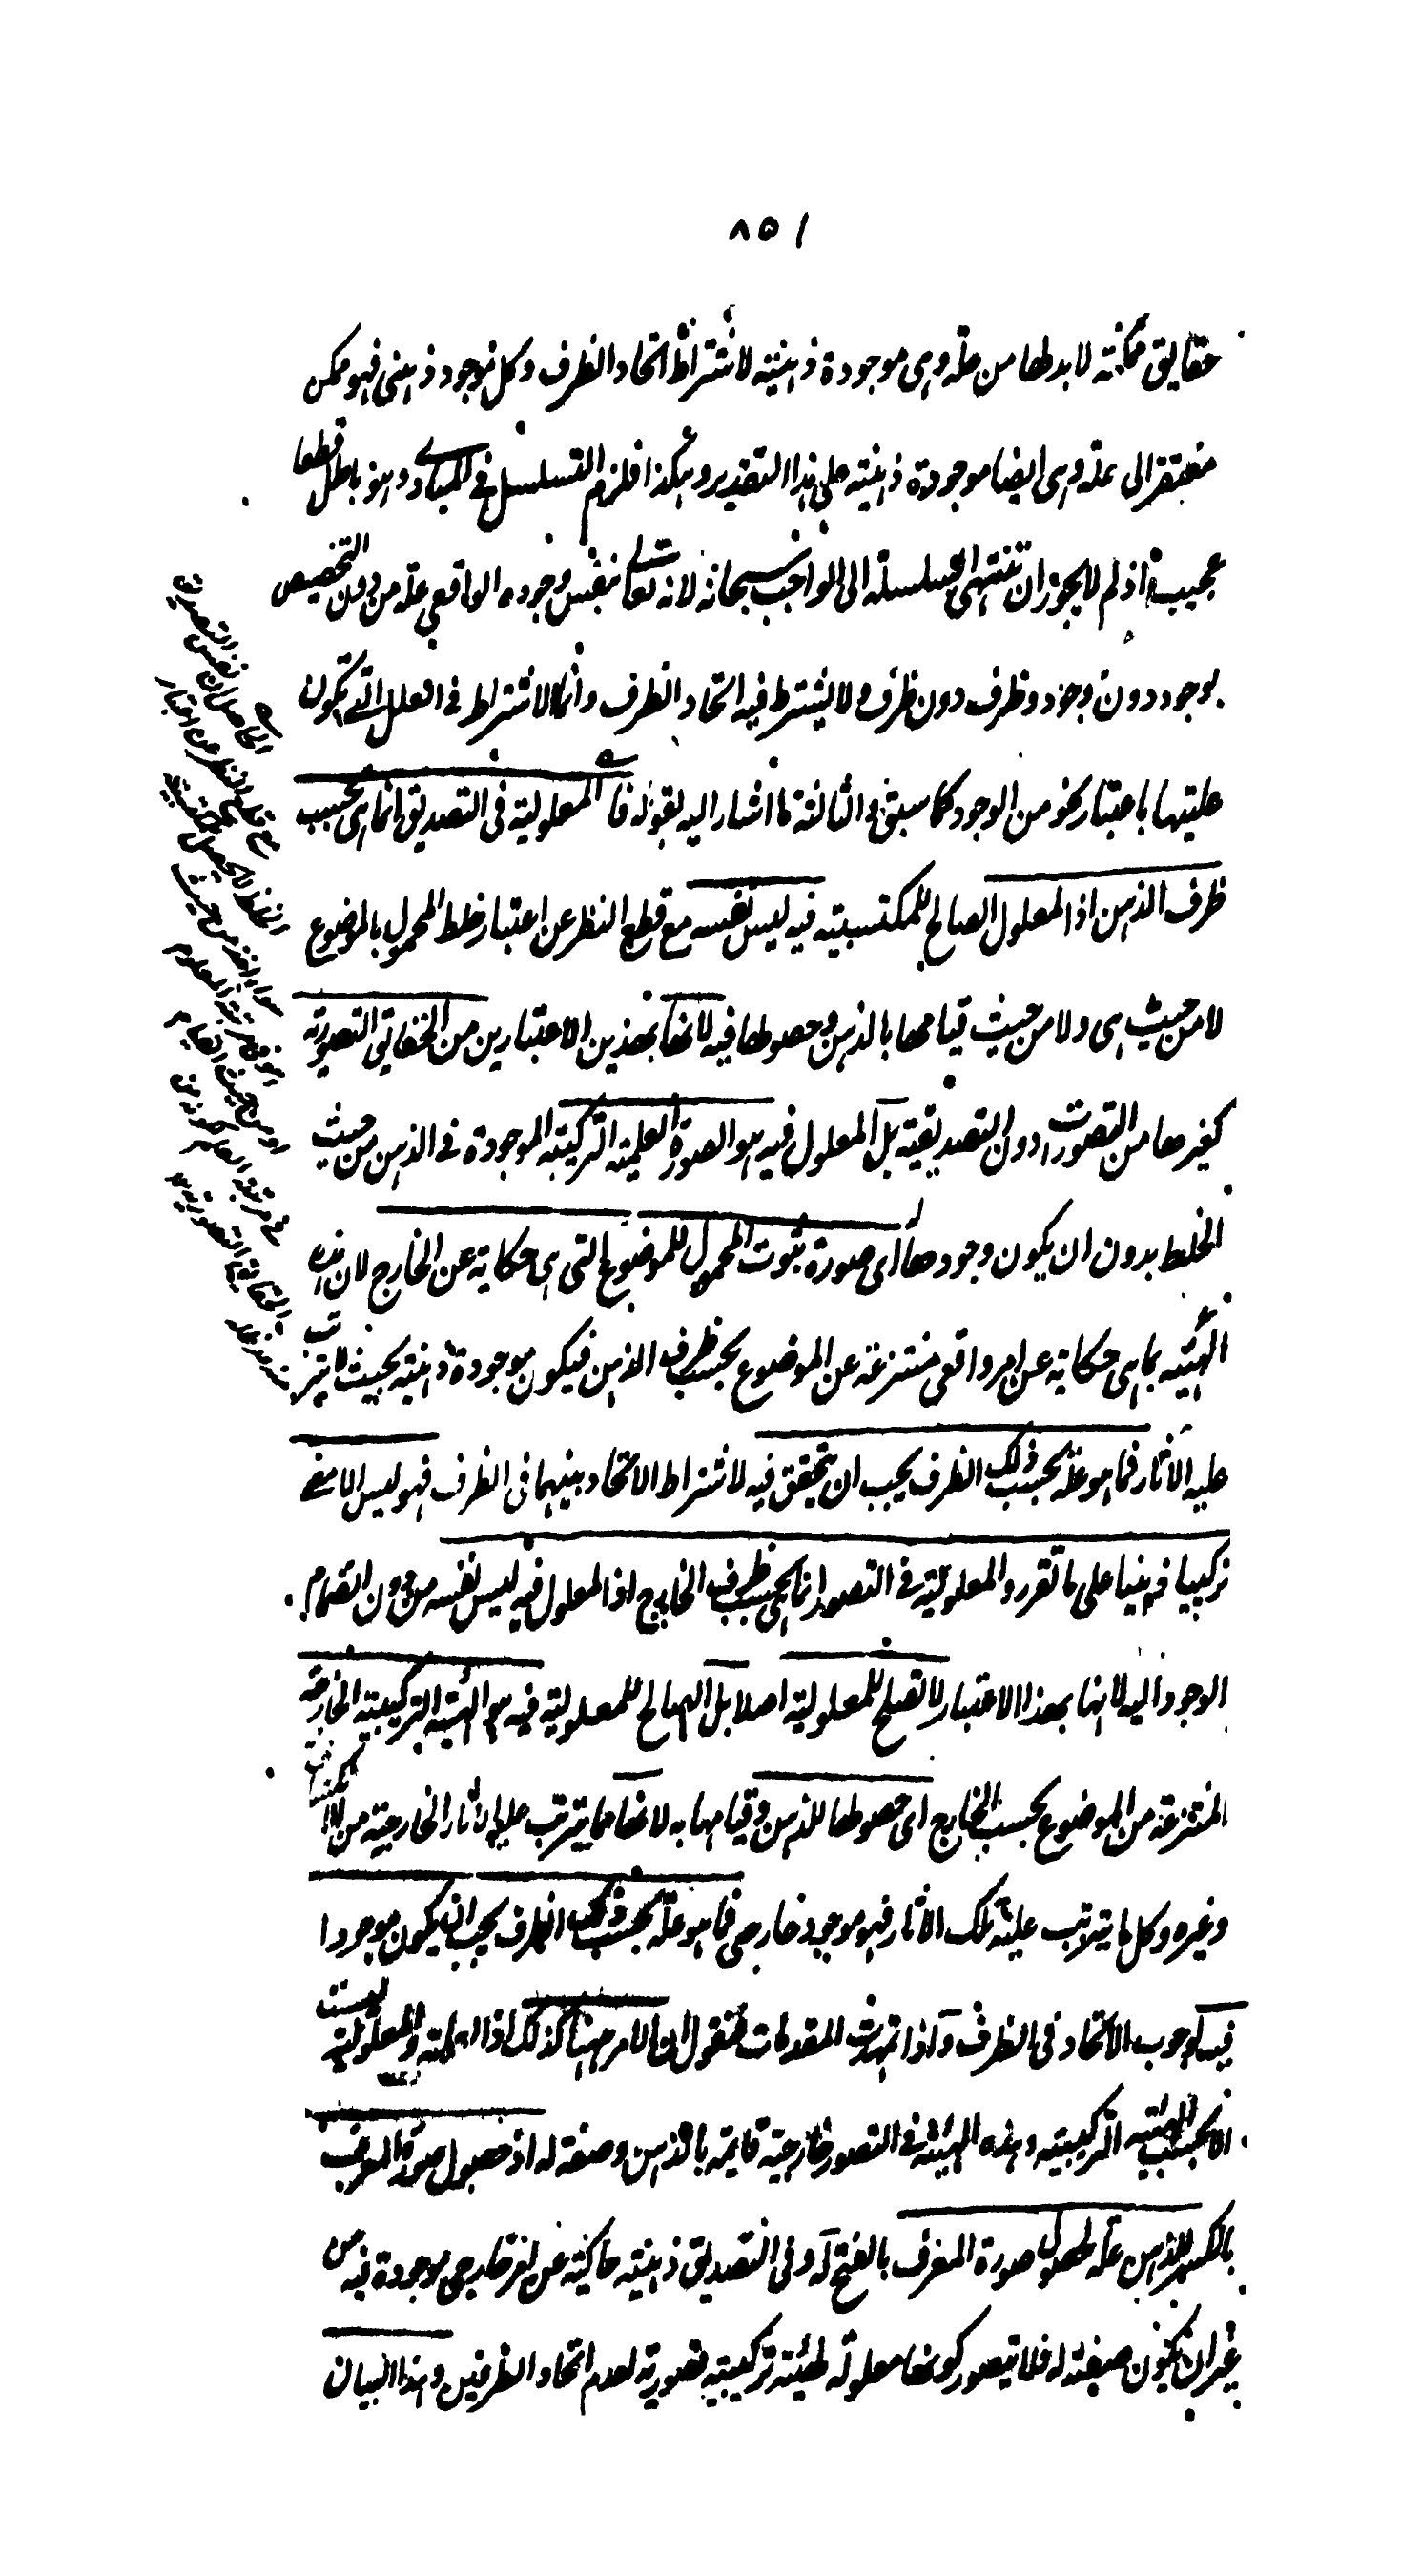 ٨٥١
حقايق ممكنة لا بد لها من علة وهى موجودة ذهنية لاشتراط اتحاد الظرف وكل موجود ذهنى فهو ممكن
مفتقر الى علة وهى ايضا موجودة ذهنية على هذا التقدير وهكذا فلزم التسلسل فى المبادى وهو باطل قطعا
عجيب اذ لم لا يجوز ان تنتهى السلسلة الى الواجب سبحانه لانه تعالى بنفس وجوده الواقعى علة من دون التخصيص
بوجود دون وجود وظرف دون ظرف ولا يشترط فيه اتحاد الظرف وانما الاشتراط فى العلل التى تكون
عليتها باعتبار نحو من الوجود كما سبق والثالثة ما اشار اليه بقوله فالمعلولية فى التصديق انما هى بحسب
ظرف الذهن اذ المعلول الصالح للمكتسبية فيه ليس نفسه مع قطع النظر عن اعتبار خلط المحمول بالموضوع
لا من حيث هى ولا من حيث قيامها بالذهن وحصولها فيه لانها بهذين الاعتبارين من الحقائق التصورية
كغيرها من التصورات دون التصديقية بل المعلول فيه هو الصورة العلمية التركيبية الموجودة فى الذهن من حيث
الخلط بدون ان يكون وجودها اى صورة ثبوت المحمول للموضوع التى هى حكاية عن الخارج لان هذه
الهيئة بما هى حكاية عن امر واقعى منتزعة عن الموضوع بحسب ظرف الذهن فيكون موجودة ذهنية بحيث لا يترتب
عليه الآثار فما هو علة بحسب ذلك الظرف يجب ان يتحقق فيه لاشتراط الاتحاد بينهما فى الظرف فهو ليس الا معنى
تركيبيا ذهنيا على ما تقرر والمعلولية فى التصور انما هى بحسب ظرف الخارج اذ المعلول فيه ليس نفسه من دون انضمام
الوجود اليه لانها بهذا الاعتبار لا تصلح للمعلولية اصلا بل الصالح للمعلولية فيه هو الهيئة التركيبية الخارجية
المنتزعة من الموضوع بحسب الخارج اى حصولها للذهن وقيامها به لانها مما يترتب عليه الآثار الخارجية من الانكشاف
وغيره وكل ما يترتب عليه تلك الآثار فهو موجود خارجى فما هو علة بحسب ذلك الظرف يجب ان يكون موجودا
فيه لوجوب الاتحاد فى الظرف واذا تمهدت المقدمات فنقول ان الامر ههنا كذلك اذ العلية والمعلولية ليست
الا بحسب الهيئة التركيبية وهذه الهيئة فى التصور خارجية قايمة بالذهن وصفة له اذ حصول صورة المعرف
بالكسر للذهن علة لحصول صورة المعرف بالفتح له وفى التصديق ذهنية حاكية عن امر خارجى موجودة فيه من
غير ان تكون صفة له فلا يتصور كونها معلولة لهيئة تركيبية تصورية لعدم اتحاد الظرفين وهذا البيان
الحاصل ان نفس التصديق
مع قطع النظر عن اعتبار